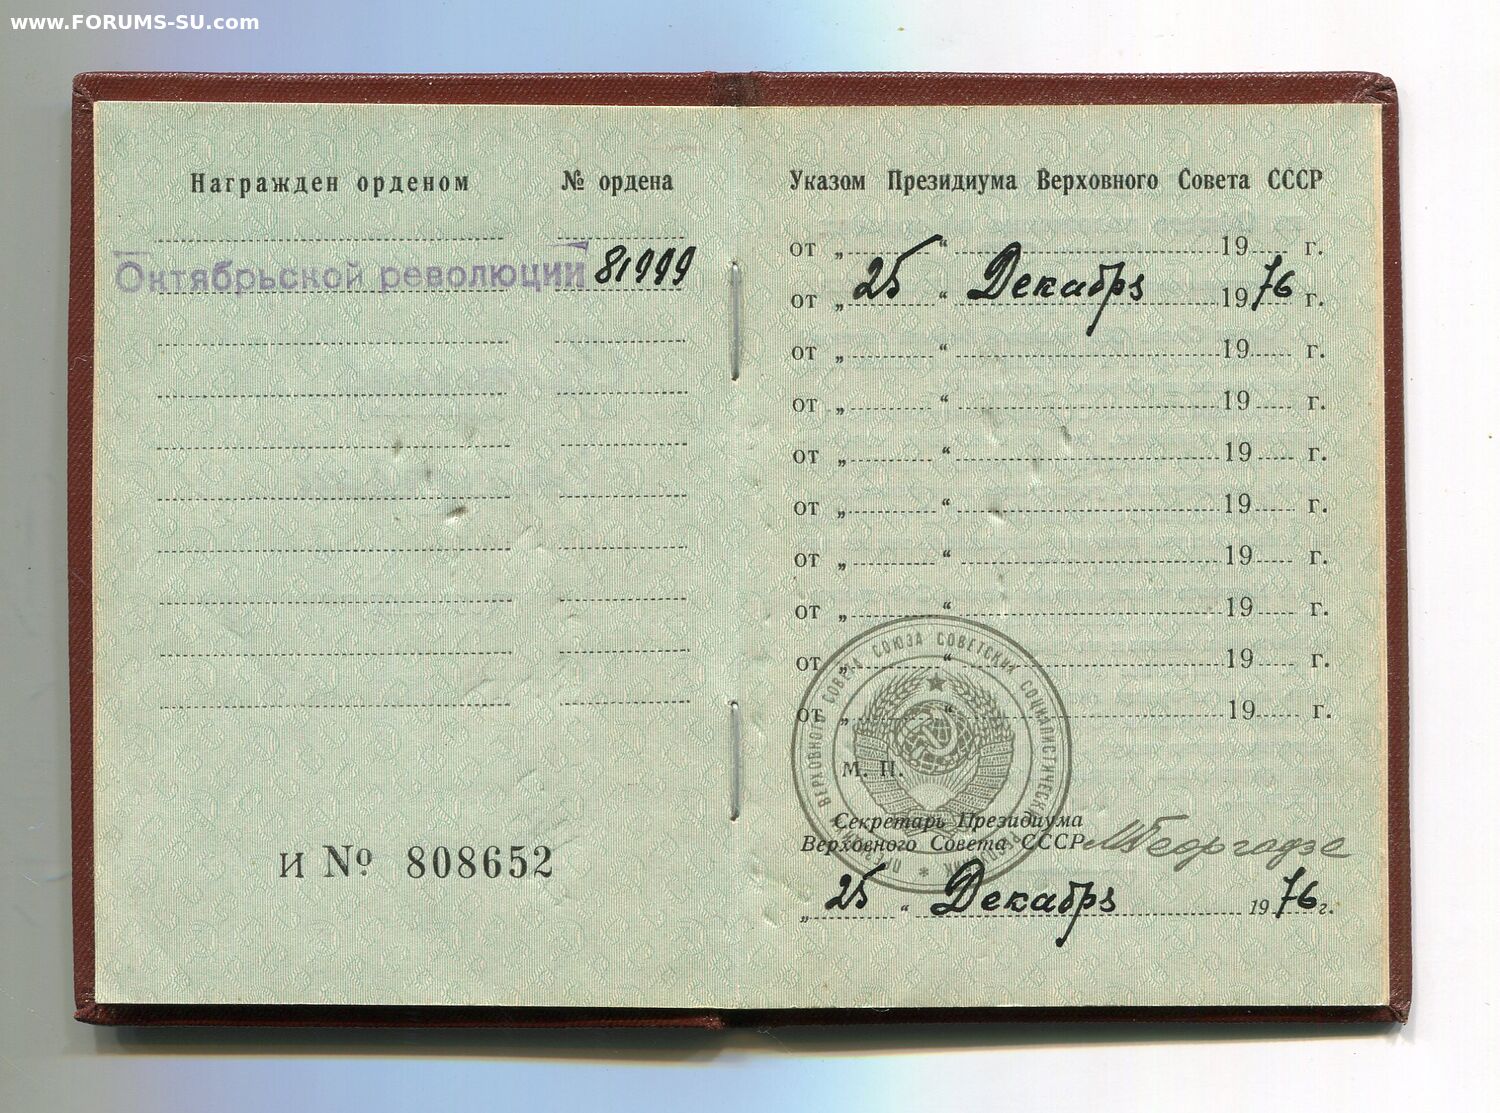 www.FORUMS-SU.com
Награжден орденом № ордена
Октябрьской революции 81999
И № 808652
Указом Президиума Верховного Совета СССР
от „ “ 19 г.
от „ 25 “ Декабря 1976 г.
от „ “ 19 г.
от „ “ 19 г.
от „ “ 19 г.
от „ “ 19 г.
от „ “ 19 г.
от „ “ 19 г.
от „ “ 19 г.
от „ “ 19 г.
ПРЕЗИДИУМ ВЕРХОВНОГО СОВЕТА СОЮЗА СОВЕТСКИХ СОЦИАЛИСТИЧЕСКИХ РЕСПУБЛИК *
М. П.
Секретарь Президиума
Верховного Совета СССР МГеоргадзе
„ 25 “ Декабря 1976 г.